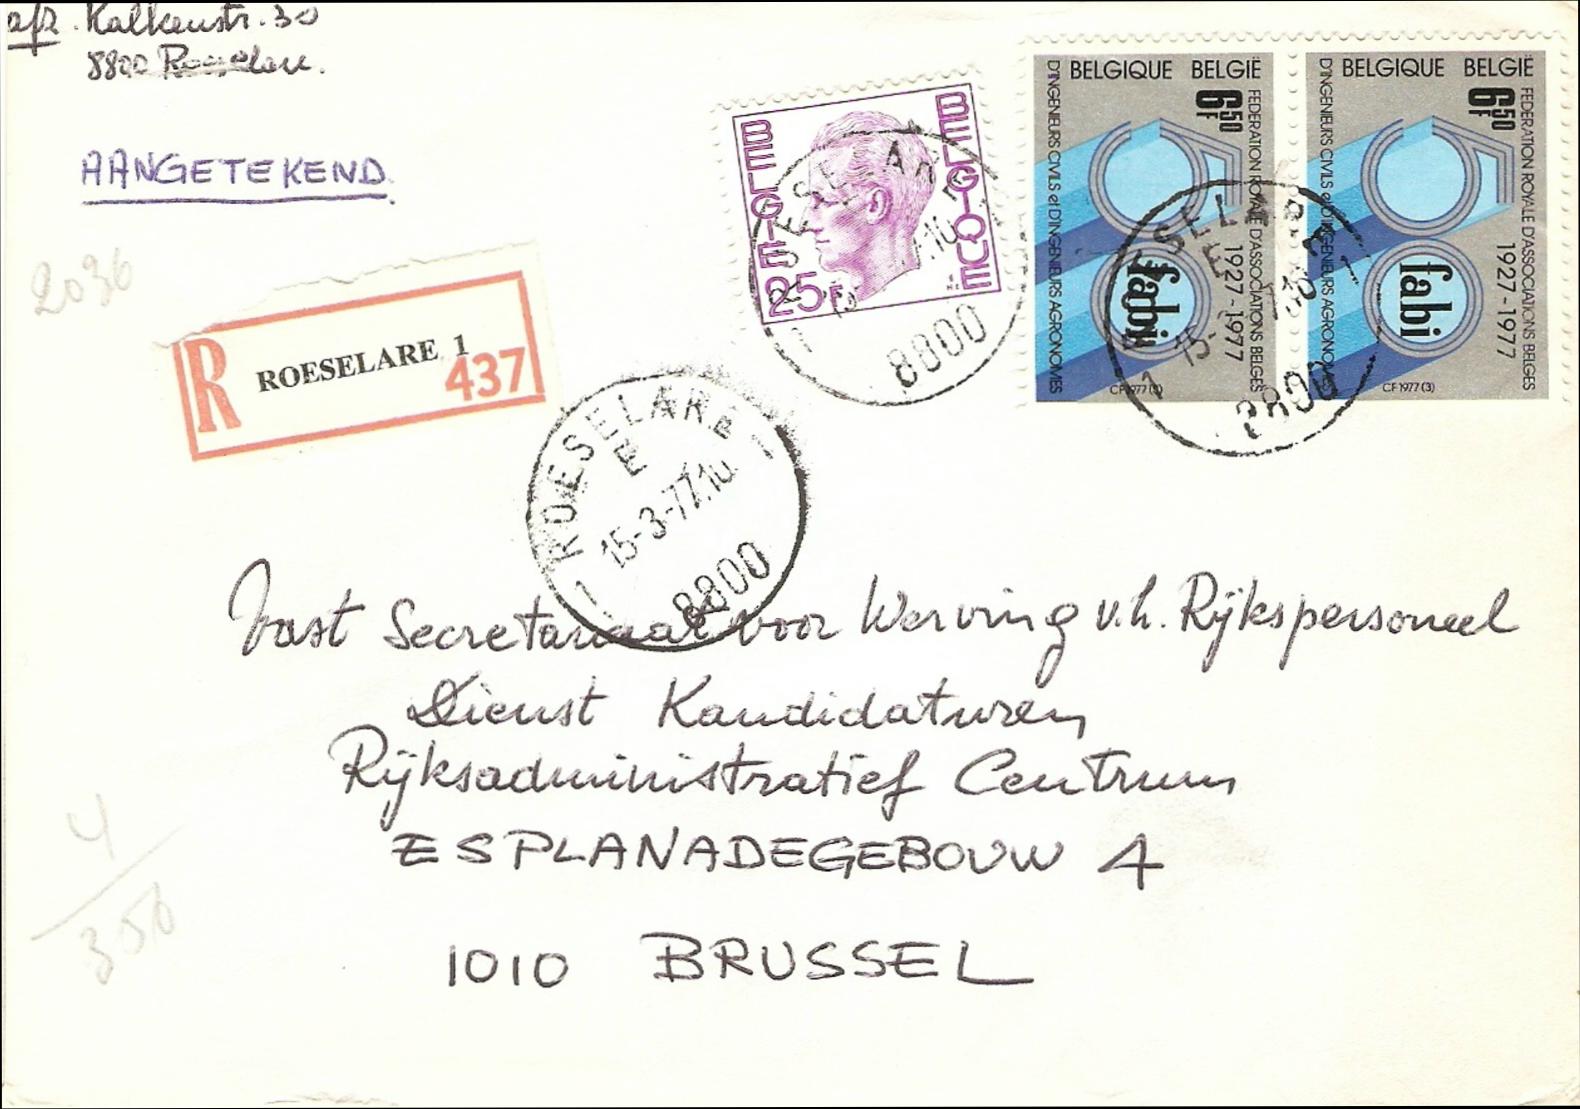 afz. Kalkenstr. 30
8800 Roeselare.
AANGETEKEND.
2036
R ROESELARE 1
437
BELGIË BELGIQUE
25F
ROESELARE
8800
BELGIQUE BELGIË
6F50
FEDERATION ROYALE D'ASSOCIATIONS BELGES
D'INGENIEURS CIVILS et D'INGENIEURS AGRONOMES
1927-1977
50
fabi
CF 1977 (3)
BELGIQUE BELGIË
6F50
FEDERATION ROYALE D'ASSOCIATIONS BELGES
D'INGENIEURS CIVILS et D'INGENIEURS AGRONOMES
1927-1977
50
fabi
CF 1977 (3)
1 ROESELARE 1
E
15-3-77.10
8800
Vast Secretariaat voor Werving v.h. Rijkspersoneel
Dienst Kandidaturen
Rijksadministratief Centrum
ESPLANADEGEBOUW 4
1010 BRUSSEL
4
350